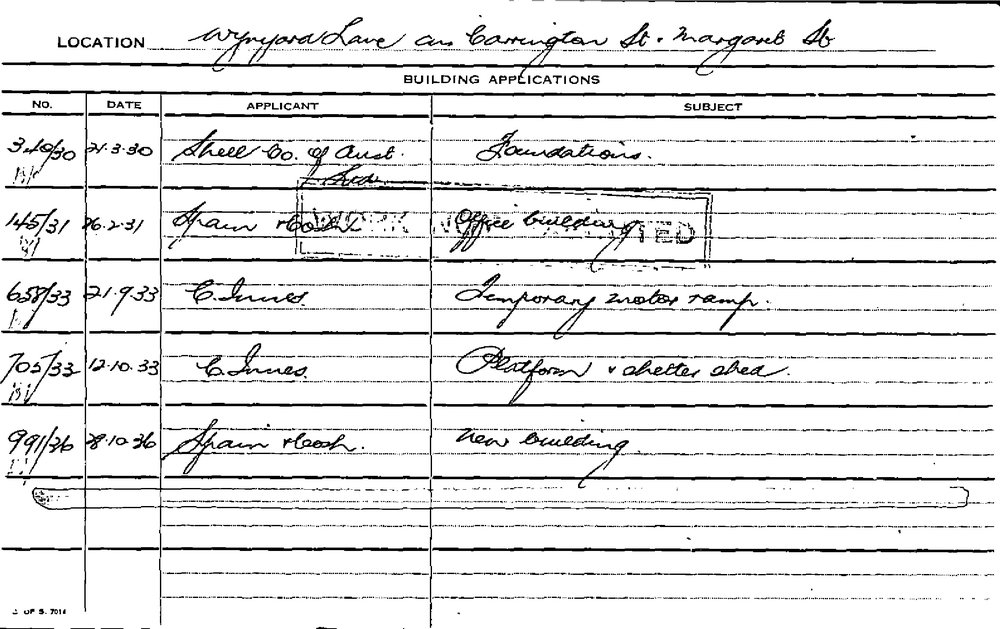 LOCATION Wynyard Lane Carrington St. Margaret St
BUILDING APPLICATIONS
NO. DATE APPLICANT SUBJECT
340/30 21.3.30 Shell Co. of Aust. Foundations.
BA Ltd
145/31 26.2.31 Spain & Cosh Office building
BA WORK NOT
658/33 21.9.33 C. Innes. Temporary motor ramp.
705/33 12.10.33 C. Innes. Platform & shelter shed.
BA
991/36 28.10.36 Spain & Cosh. New building
OF S. 7014